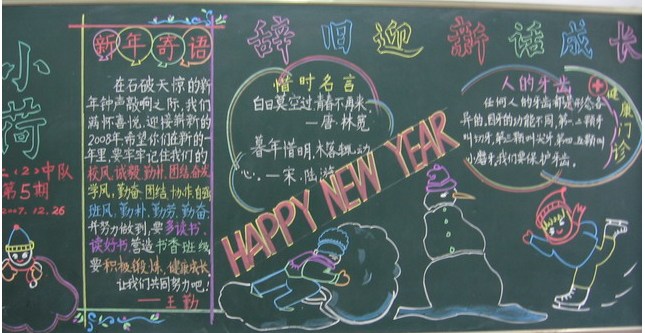 小荷
〈2〉中队
第5期
2007.12.26
新年寄语
在石破天惊的新
年钟声敲响之际,我们
满怀喜悦,迎接崭新的
2008年.希望你们在新的一
年里,要牢牢记住我们的
校风,诚毅、勤朴、团结奋发
学风,勤奋、团结、协作、自强
班风,勤朴、勤劳、勤奋.
并努力做到,要多读书、
读好书营造书香班级
要积极锻炼、健康成长
让我们共同努力吧!
——王勤
辞旧迎新话成长
惜时名言
白日莫空过青春不再来
——唐·林宽
暮年惜明,木落动
心.——宋·陆游
HAPPY NEW YEAR
人的牙齿
任何人的牙齿都是形态各
异的,牙的功能不同,第一、二颗牙
叫切牙,第三颗叫尖牙,第四、五颗叫
小磨牙,我们要保护牙齿.
健康门诊